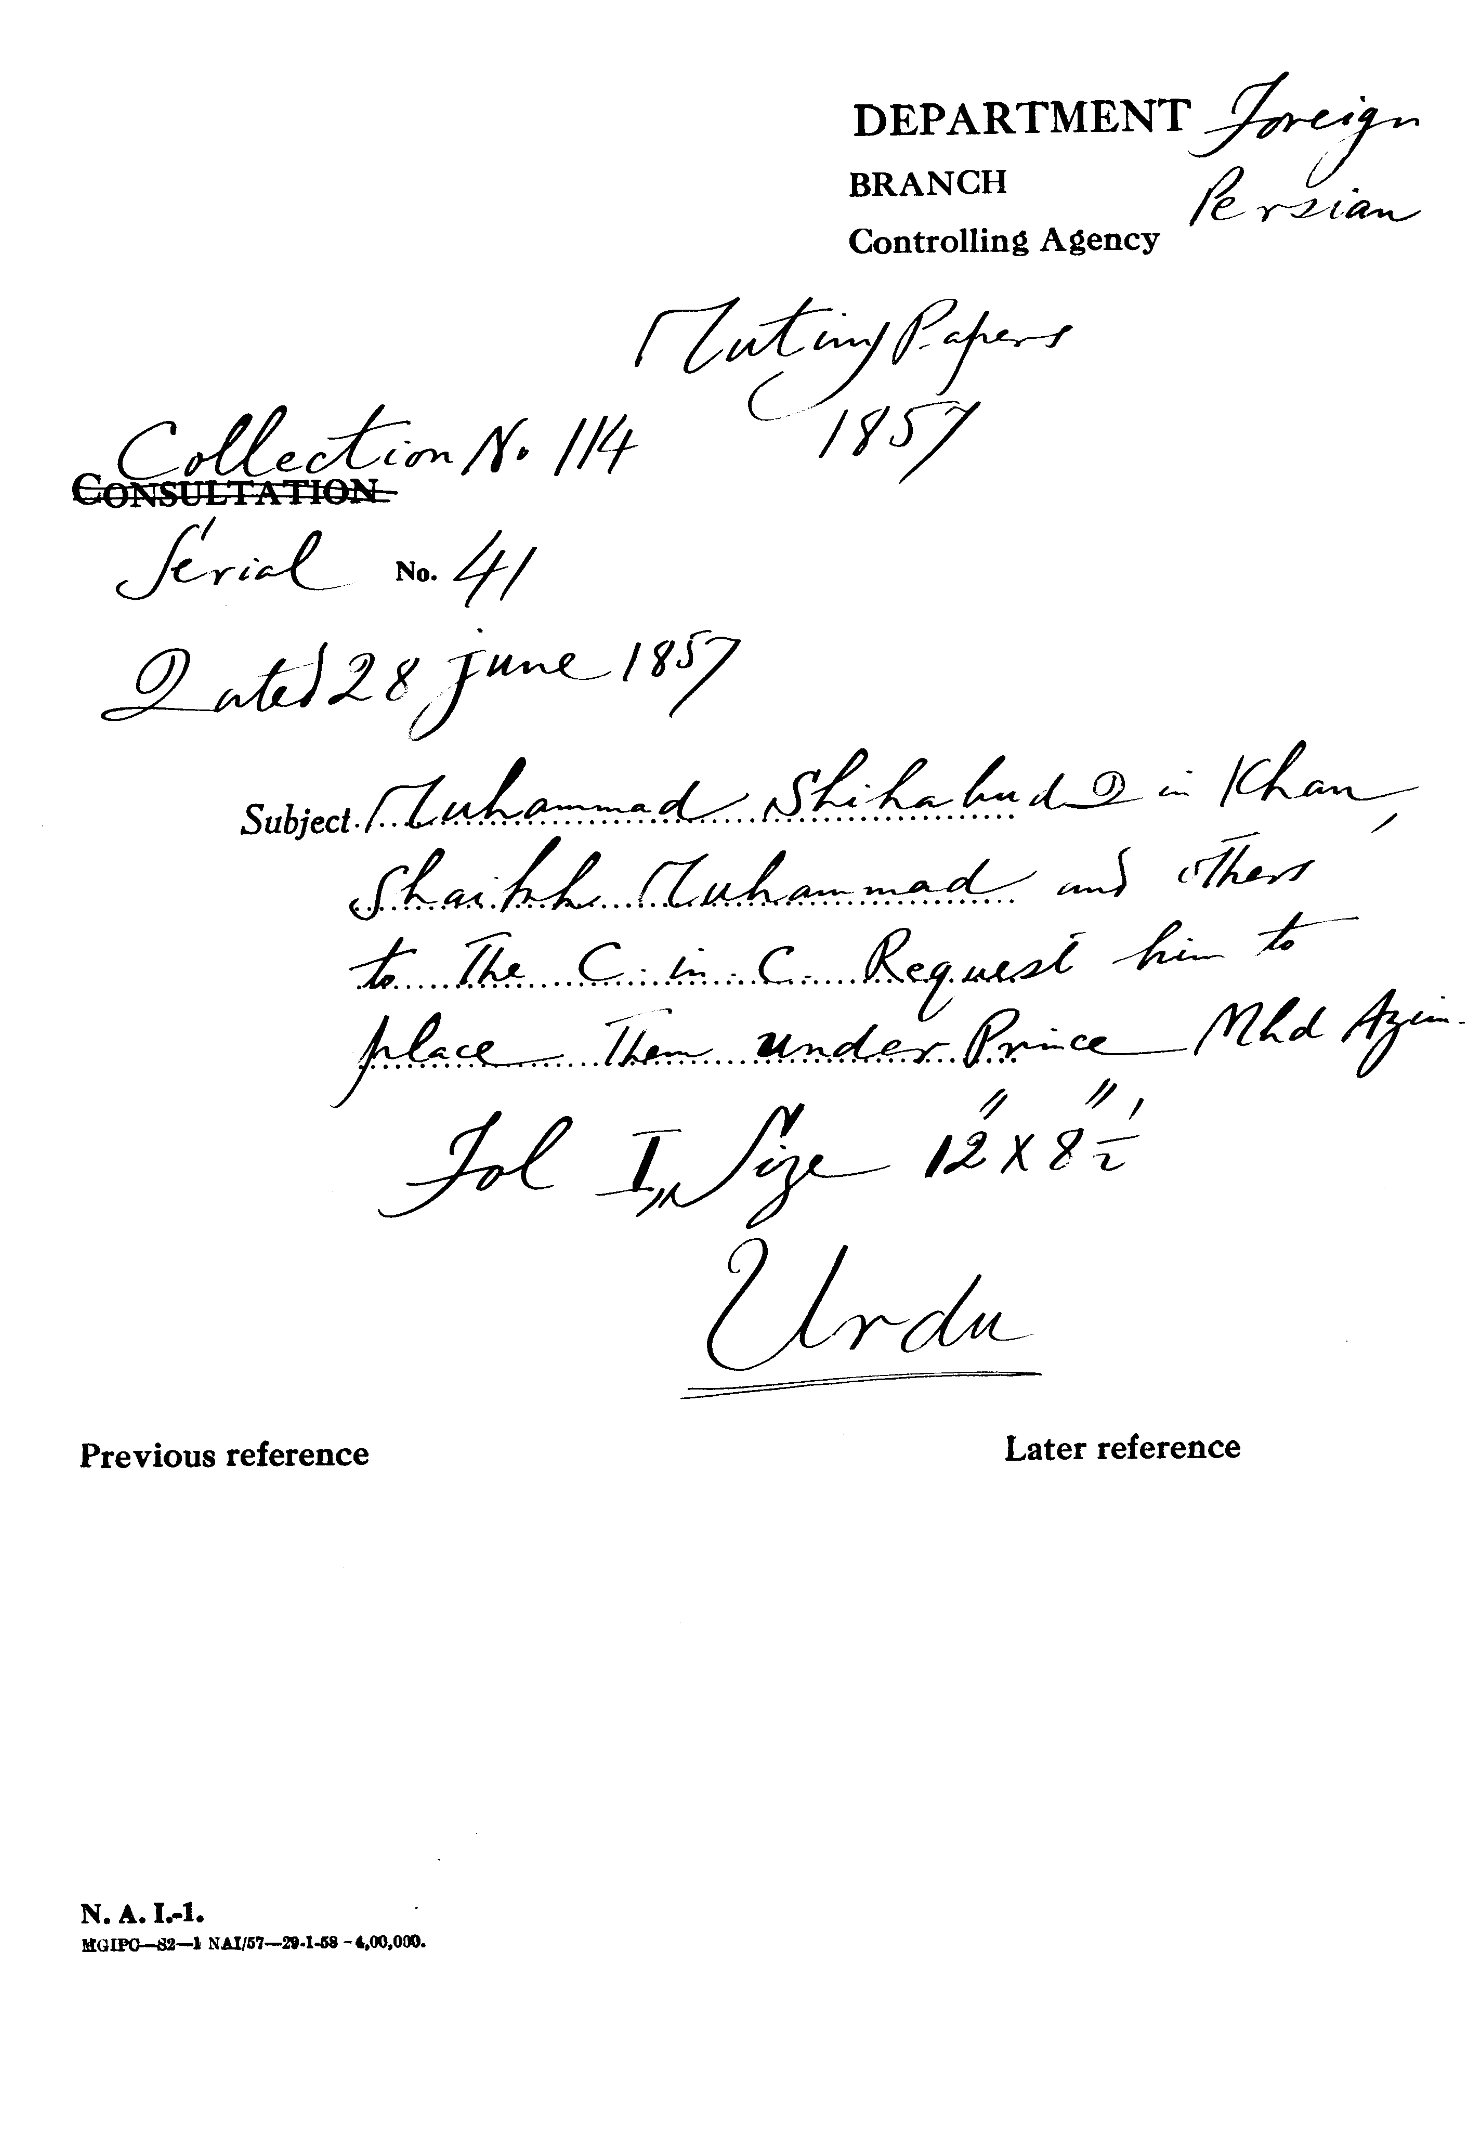 DEPARTMENT Foreign
BRANCH Persian
Controlling Agency
Mutiny Papers
1857
Collection No. 114
CONSULTATION
Serial No. 41
Dated 28 june 1857
Subject Muhammad Shihabud Din Khan,
Shaikh Muhammad and others
to The C. in. C. Request him to
place Them under Prince Mhd Azim.
Fol I, Size 12" x 8½"
Urdu
Previous reference
Later reference
N. A. I.-1.
MGIPC—S2—1 NAI/57—29-1-58 -4,00,000.